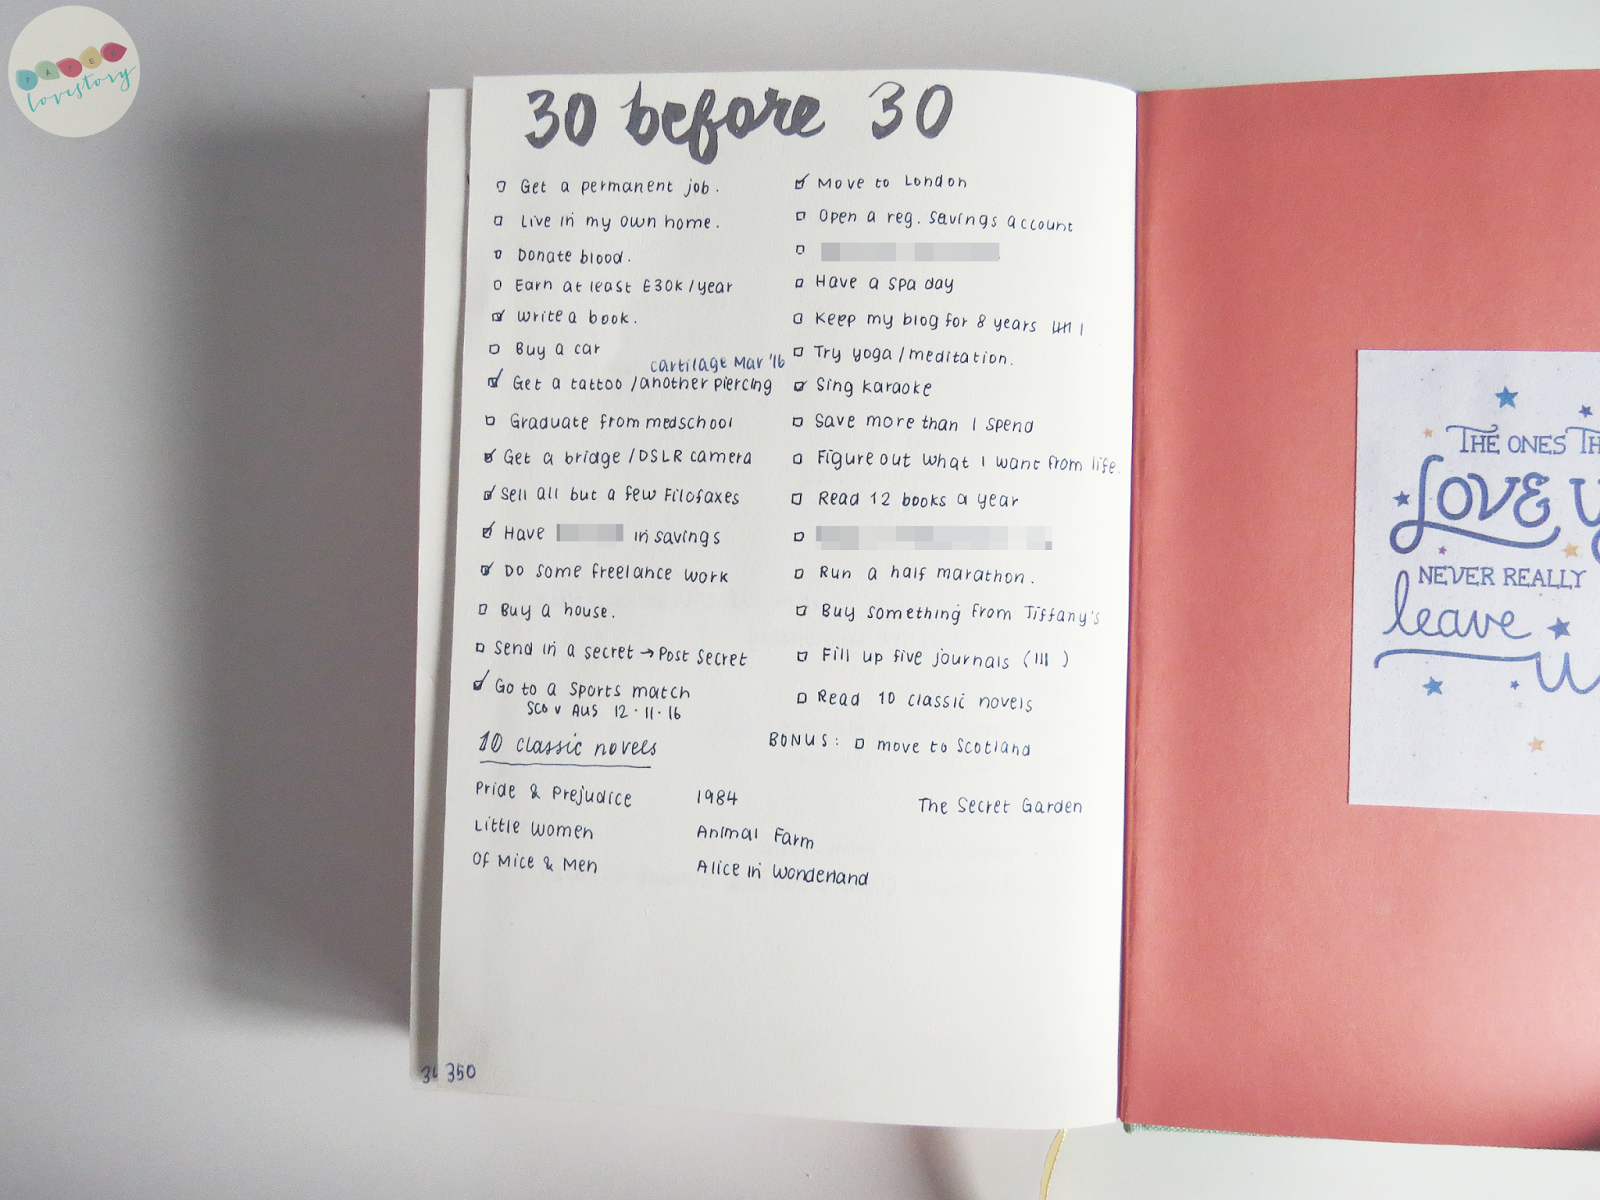 PAPER
lovestory
30 before 30
Get a permanent job.
Live in my own home.
Donate blood.
Earn at least £30K/year
Write a book.
Buy a car
cartilage Mar '16
Get a tattoo /another piercing
Graduate from medschool
Get a bridge /DSLR camera
Sell all but a few Filofaxes
Have in savings
Do some freelance work
Buy a house.
Send in a secret → Post Secret
Go to a sports match
SCO v AUS 12·11·16
Move to London
Open a reg. savings account
Have a spa day
Keep my blog for 8 years 卌 |
Try yoga/meditation.
Sing karaoke
Save more than I spend
Figure out what I want from life.
Read 12 books a year
Run a half marathon.
Buy something from Tiffany's
Fill up five journals (III )
Read 10 classic novels
BONUS: move to Scotland
10 classic novels
Pride & Prejudice
Little Women
Of Mice & Men
1984
Animal Farm
Alice in Wonderland
The Secret Garden
350
THE ONES TH
LOVE
NEVER REALLY
leave